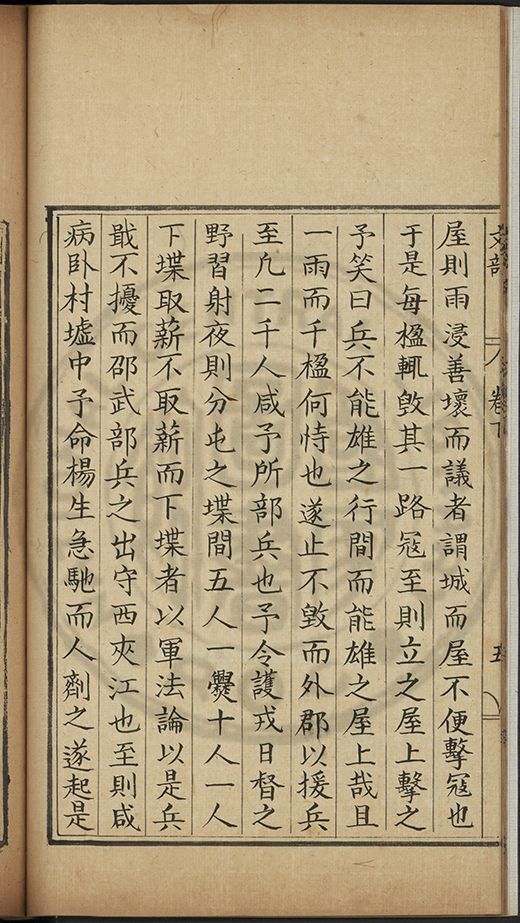 屋則雨浸善壞而議者謂城而屋不便擊冦也
于是每楹輒毀其一路冦至則立之屋上擊之
予笑曰兵不能雄之行間而能雄之屋上哉且
一雨而千楹何恃也遂止不毀而外郡以援兵
至凢二千人咸予所部兵也予令護戎日督之
野習射夜則分屯之堞間五人一爨十人一人
下堞取薪不取薪而下堞者以軍法論以是兵
戢不擾而邵武部兵之出守西夾江也至則咸
病卧村墟中予命楊生急馳而人劑之遂起是